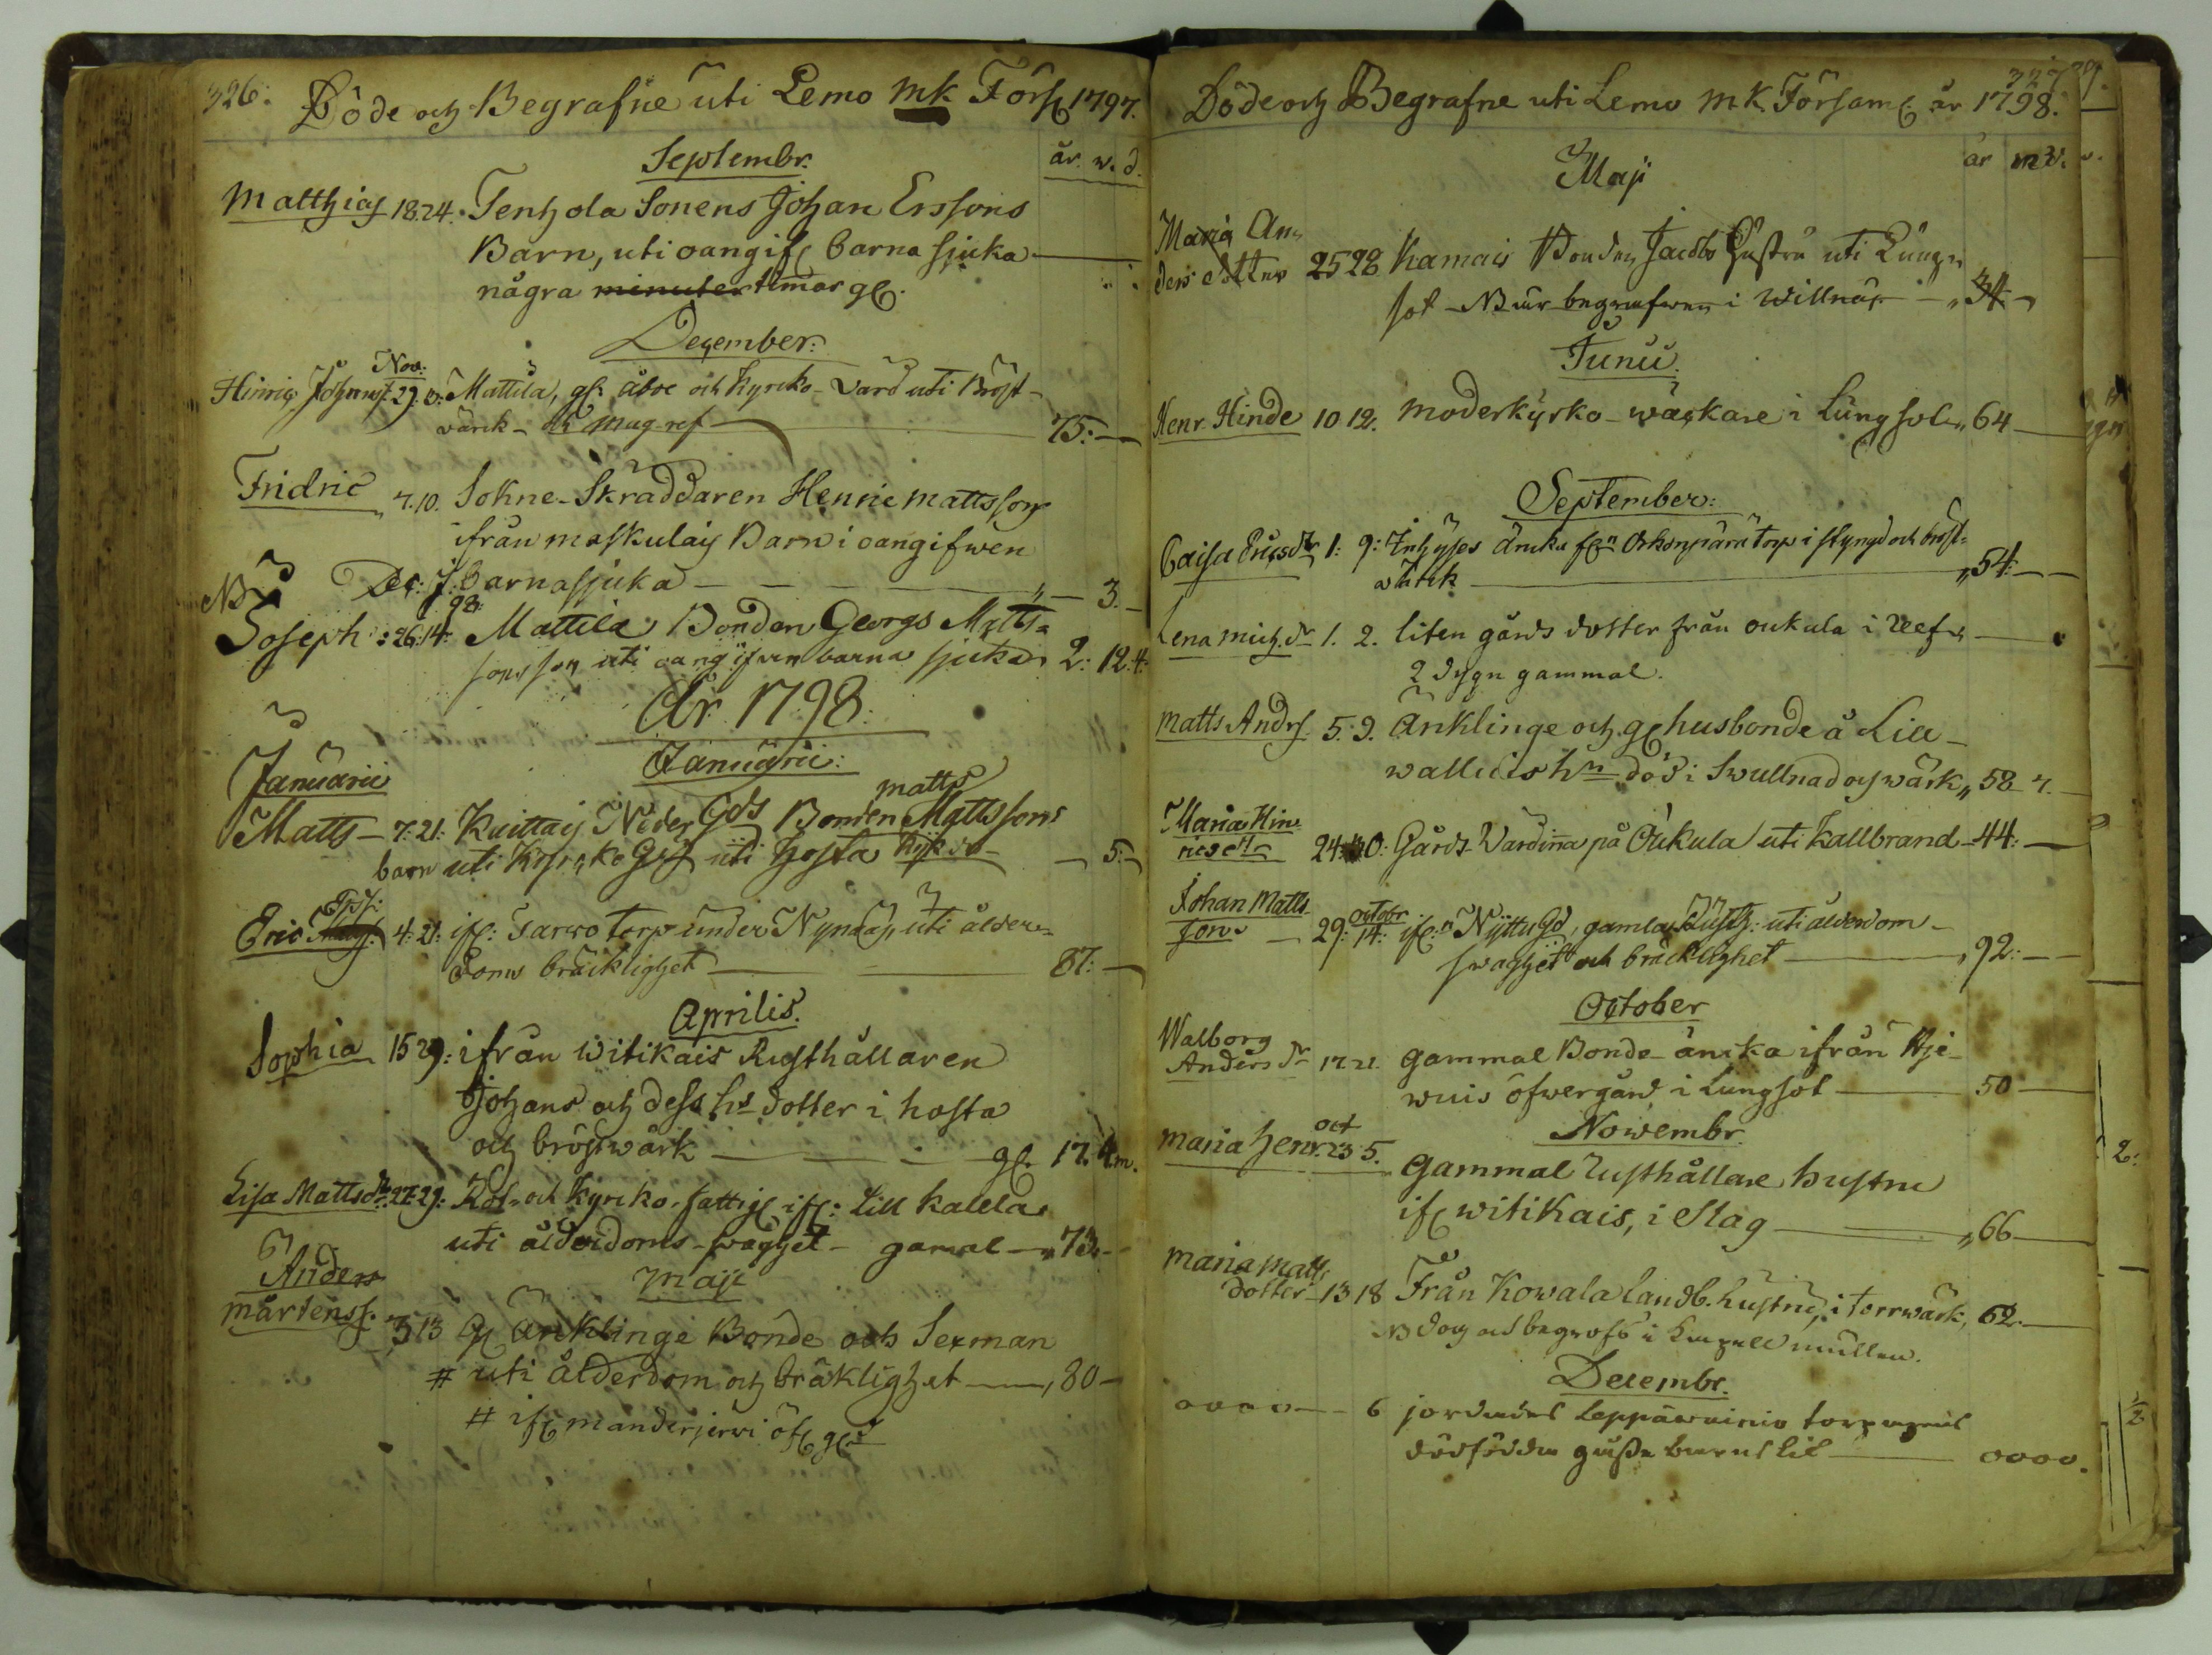 326. Döde och Begrafne uti Lemo Mk Förs 1797.
Septembr. år. w. d.
Matthias 18.24. Tenhola Sonens Johan Erssons
Barn, uti oangif. barna sjuka
några minuter timar gl.
December:
Nov:
Hinric 29. Mattila, gl. åboe och Kyrcko-Värd uti Bröst-
värck- och Mag-ref 75:
Fridric 4.10. Sokne-Skräddaren Henric Mattsson
ifrån Maskulais Barn i oangifwen
NB Dec: barnasjuka 3.
98:
Joseph: 26.14: Mattila Bonden Georgs Matts-
sons son uti oangifven barna sjuka 2: 12.4:
År 1798:
Januarii Januarii:
matts
Matts 7:21: Kuittais Neder Gds Bonden Mattssons
barn uti hosta 5:
Eric 4:21: if: Jarwo torp under Nynäs, uti ålder-
doms bräcklighet 87:
Aprilis.
Sophia 15 29: ifrån Witikais Rusthållaren
Johans och dess hs dotter i hosta
och bröstwärk gl. 17. 4m.
Lisa Mattsdr: 27.29: Rot- och Kyrcko-fattig if: Lill Kalela
uti ålderdoms-swaghet gamal 73.
Maji
Anders
Mårtenss. 3 13 Gl Änklinge Bonde och Sexman
# uti ålderdom och bräklighet 80
# if manderjerwi öf gd
327
Döde och Begrafne uti Lemo MK Församl: år 1798.
Maji år m. d.
Maria An-
ders dotter 25 28 Kamais Bonden Jacobs Hustru uti Lung-
sot - NB är begrafwen i Willnäs 34
Junii.
Henr. Hinde 10 12. Moderkyrko-wäckare i Lungsot 64
September:
Caisa Ericsdr 1: 9: Inhyses Äncka fn torp i styng och bröst-
wärck 54:
Lena Mich.dr 1. 2. liten gårds dotter från oukula i Reef
2 dygn gammal.
Matts Andrs. 5. 9. Änklinge och gl husbonde å Lill-
wallis hn död i Swullnad och wärk 58 7.
Maria Hin-
ricsdtr 24: 30: Gårds-Värdinna på Oukula uti Kallbrand 44:
Johan Matts
son 29: octobr 14: if:n Nyttu Gd, gamla uti ålderdom-
swaghet och bräcklighet 92:
October
Walborg
Andersdr 17 21. gammal Bonde-äncka ifrån Hje-
wuis öfwergård i Lungsot 50
Nowembr.
oct
Maria Henr. 23 5. Gammal Rusthållare hustru
if witikais, i Slag 66
Maria Matts
dotter 13 18 Från Kowala Landb. hustru, i torrwärk, 62.
NB
Decembr.
oooo 6 jordades Leppäwainio torpares
dödfödda lik oooo.